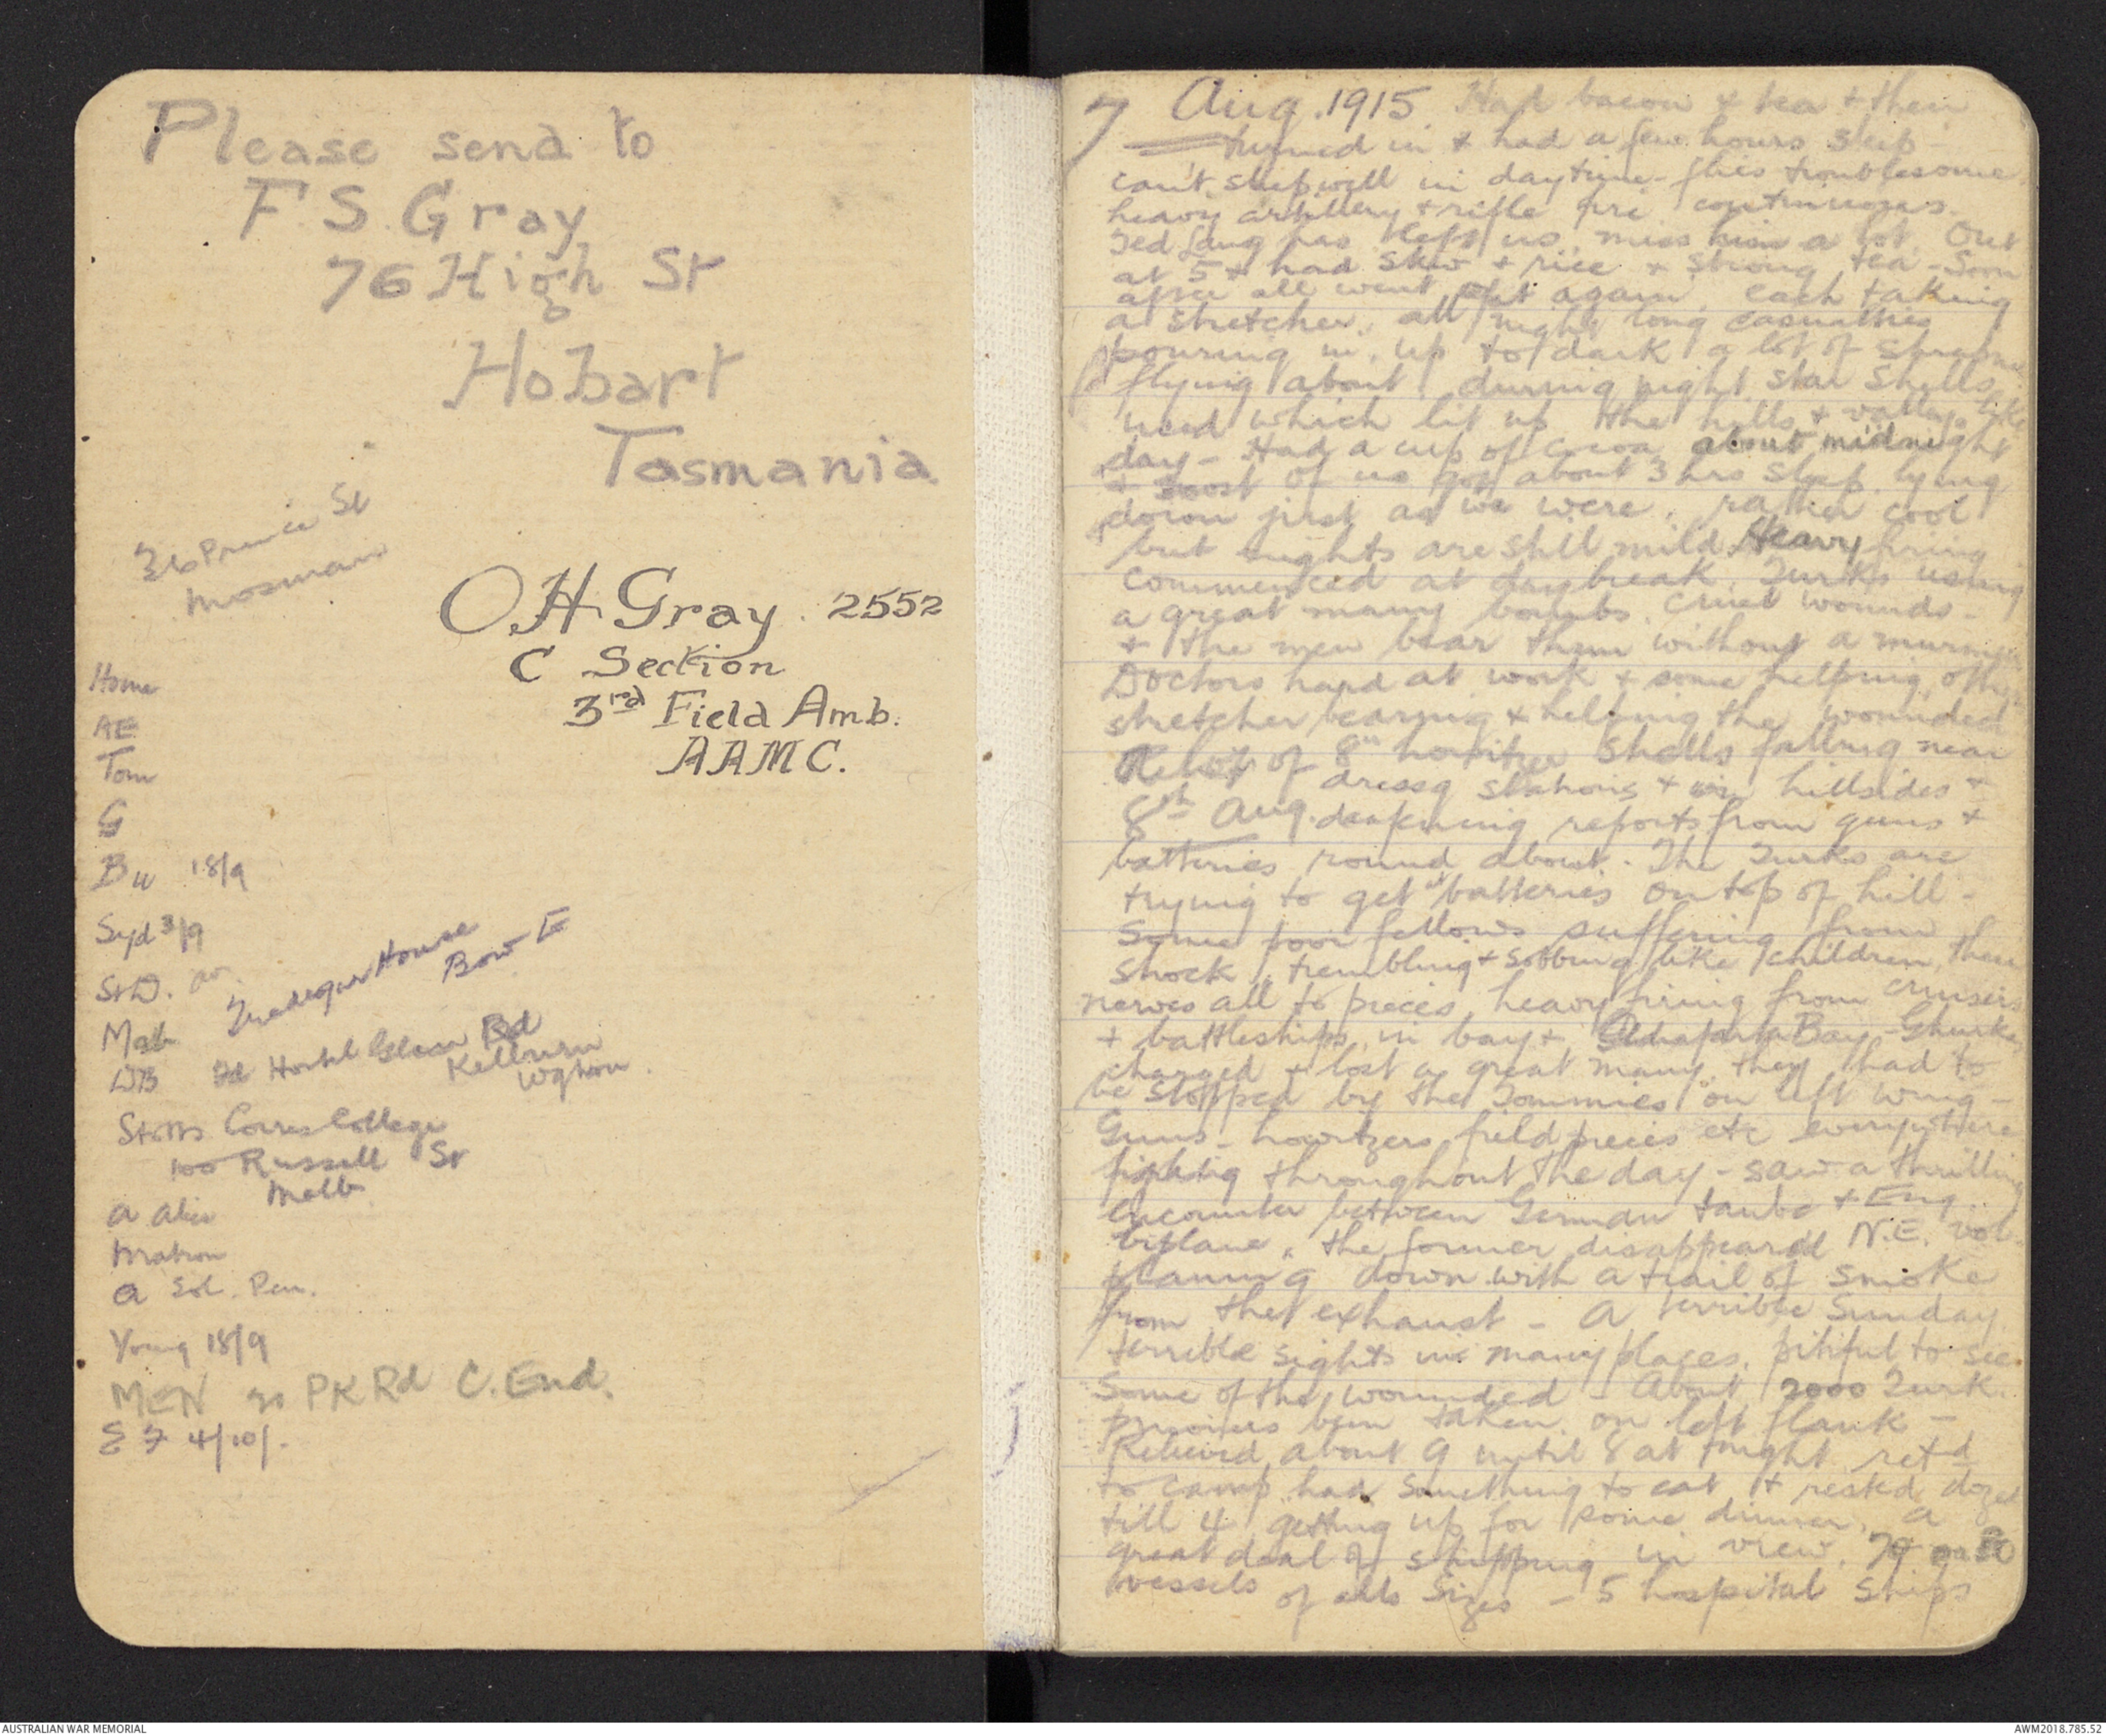 Please send to
F. S. Gray
76 High St
Hobart
Tasmania
36 Prince St
Mosman
O.H. Gray. 2552
C Section
3rd Field Amb.
AAMC.
Home
AE
Tom
G
Bu 18/9
Syd 3/9
StD.
Tredegar House
Bow E
Math
DB Hostel Glen Rd
Kelburn
Wgton.
Stotts Corres College
100 Russell St
Melb
a Alice
Matron
a Sol. Pen.
Young 18/9
MEN PK Rd C. End.
4/10/.
7 Aug. 1915. Had bacon & tea & then
turned in & had a few hours sleep -
can't sleep well in daytime - flies troublesome.
heavy artillery & rifle fire continuous.
Ted Lang has left us, miss him a lot. Out
at 5 & had stew & rice & strong tea - Soon
after all went out again, each taking
a stretcher, all night long casualties
pouring in, up to dark a lot of shrapnel
flying about, during night star shells
used which lit up the hills & valleys like
day - Had a cup of cocoa about midnight
& most of us got about 3 hrs sleep, lying
down just as we were, rather cool
but nights are still mild. Heavy firing
commenced at daybreak. Turks using
a great many bombs. Cruel wounds -
& the men bear them without a murmur
Doctors hard at work & some helping, others
stretcher bearing & helping the wounded
A lot of 8" howitzer shells falling near
dressg stations & on hillsides &
8th Aug. deafening reports from guns &
batteries round about. The Turks are
trying to get at batteries on top of hill -
Some poor fellows suffering from
shock, trembling & sobbing like children, their
nerves all to pieces, heavy firing from cruisers
& battleships in bay & Bay - Ghurkas
charged & lost a great many, they had to
be stopped by the Tommies on left wing -
Guns - howitzers, field pieces etc everywhere
fighting throughout the day - saw a thrilling
encounter between German taube & Eng
biplane, the former disappeared N.E. vol-
planing down with a trail of smoke
from the exhaust - A terrible Sunday
terrible sights in many places, pitiful to see
some of the wounded - About 2000 Turk.
prisoners been taken on left flank -
Relieved about 9 until 8 at night retd
to camp, had something to eat & rested, dozed
till 4 getting up for some dinner. A
great deal of shipping in view. 70 or 80
vessels of all sizes - 5 hospital ships
AUSTRALIAN WAR MEMORIAL
AWM2018.785.52